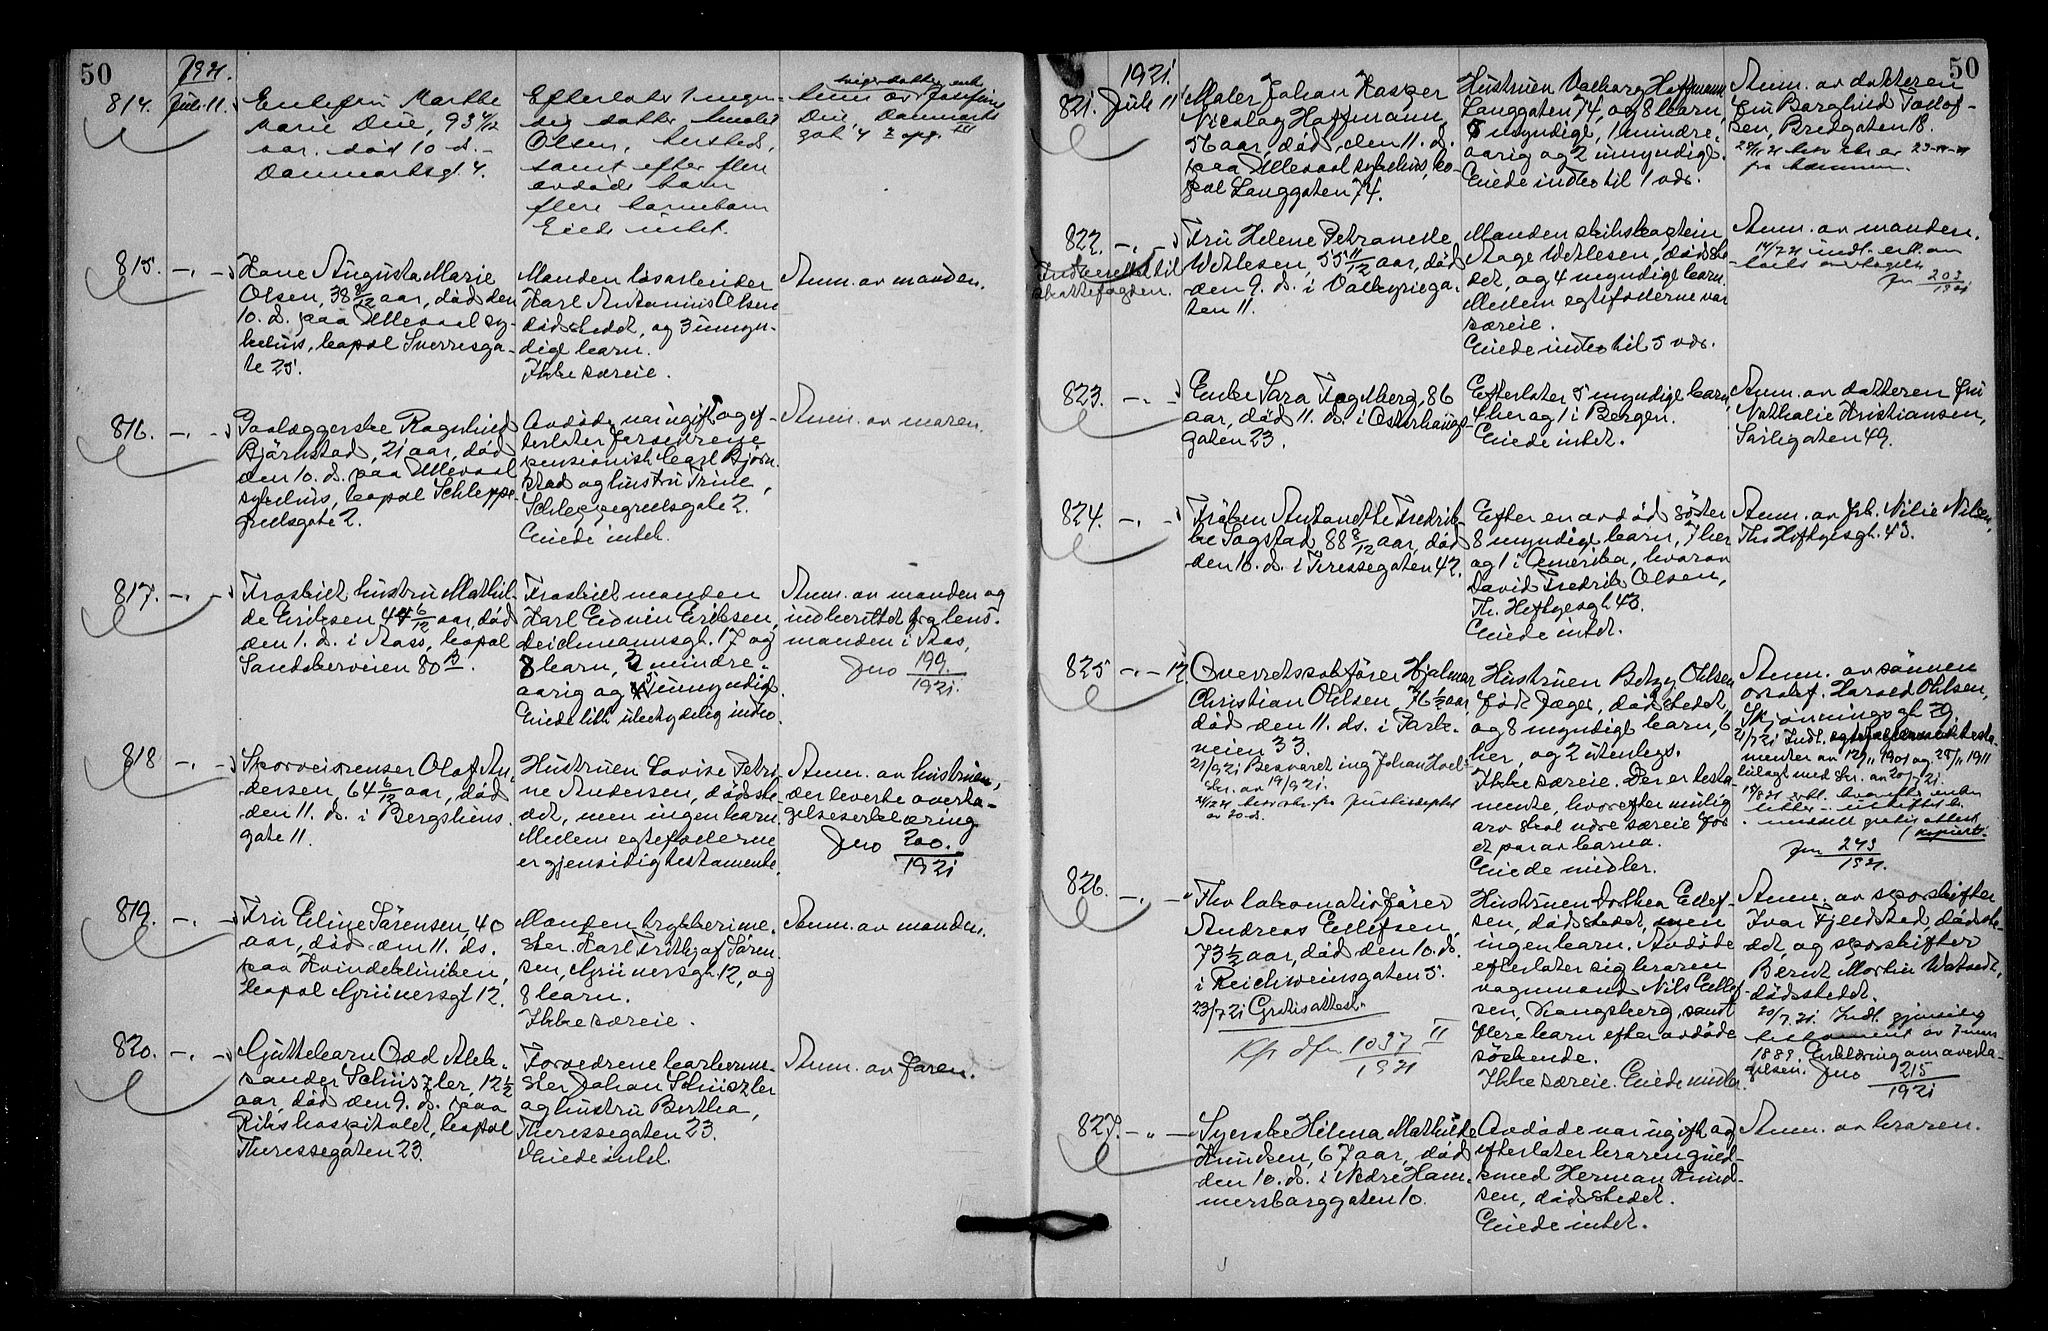 50
1921.
814. Juli 11.
Enkefru Marthe
Marie Due, 93 4/12
aar, död 10 ds.
Danmarksgt. 4.
Efterlater 1 myn-
dig datter Amalie
Olsen, dersteds,
samt efter flere
avdöde barn
flere barnebarn
Eiede intet.
Anm. av Josefine
Due, Danmarks
gat. 4 2 opg. III
815. -.-
Kone Augusta Marie
Olsen, 38 8/12 aar, död den
10. ds. paa Ullevaal sy-
kehus, bopæl Sverresga-
te 25.
Manden løsarbeider
Karl Antonius Olsen
dödsstedet, og 3 umyn-
dige barn.
Ikke særeie.
Anm. av manden.
816. -.-
Paalæggerske Ragnhild
Björnstad, 21 aar, död
den 10. ds. paa Ullevaal
sykehus, bopæl Schleppe-
grelsgate 2.
Avdöde var ugift og ef-
terlater forældrene
pensionist Carl Björn-
stad og hustru Trine,
Schleppegrelsgate 2.
Eiede intet.
Anm. av moren.
817. -.-
Fraskilt hustru Mathil-
de Eriksen 44 6/12 aar, död
den 1. ds. i Aas, bopæl
Sandakerveien 80 B.
Fraskilt manden
Karl Edvin Eriksen,
Deichmannsgt. 17 og
8 barn, 2 mindre-
aarig og 5 umyndige.
Eiede litt ubetydelig indbo
Anm. av manden og
indberettet fra lens-
manden i Aas,
Jno 199.
1921.
818 -.-
Sporveisrenser Olaf An-
dersen, 64 6/12 aar, död
den 11. ds. i Bergsliens
gate 11.
Hustruen Lovise Petri-
ne Andersen, dödsste-
det, men ingen barn.
Mellem egtefællerne
er gjensidig testamente.
Anm. av hustruen,
der leverte overta-
gelseserklæring
Jno 200.
1921
819. -.-
Fru Elise Sörensen, 40
aar, död den 11. ds.
paa Kvindeklinikken,
bopæl Grünersgt. 12.
Manden brykkerime-
ster Karl Fritjof Sören-
sen, Grünersgt. 12, og
8 barn.
Ikke særeie.
Anm. av manden.
820. -.-
Guttebarn Odd Alek-
sander Schüszler, 12 1/2
aar, död den 9. ds. paa
Rikshospitalet, bopæl
Theressegaten 23.
Forældrene barberme-
ster Johan Schüszler
og hustru Bertha,
Theressegaten 23.
Eiede intet.
Anm. av faren.
50
1921
821. Juli 11
Maler Johan Kasper
Nicolay Hoffmann,
56 aar, död den 11. ds.
paa Ullevaal sykehus, bo-
pæl Langgaten 74.
Hustruen Valborg Hoffmann
Langgaten 74, og 8 barn,
5 myndige, 1 mindre-
aarig og 2 umyndige.
Eiede indbo til 1 vds.
Anm. av datteren
fru Borghild Tollof-
sen, Bredgaten 18.
822. -.-
Indberettet til
skattefogden.
Fru Helene Petranelle
Wetlesen, 55 11/12 aar, död
den 9. ds. i Valkyriega-
ten 11.
Manden skibskaptein
Aage Wetlesen, dödsste-
det, og 4 myndige barn.
Mellem egtefællerne var
særeie.
Eiede indbo til 5 vds.
Anm. av manden.
14/7 21 indl. erkl. om
boets overtagelse
Jno 203
1921
823. -.-
Enke Sara Fogelberg, 86
aar, död 11. ds. i Osterhaugs-
gaten 23.
Efterlater 5 myndige barn,
4 her og 1 i Bergen.
Eiede intet.
Anm. av datteren fru
Nathalie Kristiansen,
Sarsgaten 49.
824. -.-
Fröken Antonette Fredrik-
ke Sogstad, 88 8/12 aar, död
den 10. ds. i Teressegaten 42.
Efter en avdöd söster
8 myndige barn, 7 her
og 1 i Amerika, hvorav
David Fredrik Olsen,
Th. Heftyesgt. 43.
Eiede intet.
Anm. av frk. Nilie Nilsen,
Th. Heftyesgt. 43.
825 -.- 12.
Overretssakförer Hjalmar
Christian Ohlsen, 76 1/2 aar
död den 11. ds. i Park-
veien 33.
21/9 21 Besvaret ing. Johan Hoel
skr. av 19/9 21.
Hustruen Betzy Ohlsen
född Jæger, dödsstedet,
og 8 myndige barn, 6
her, og 2 utenlegs.
Ikke særeie. Der er testa-
mente, hvorefter mulig
arv skal være særeie for
et par av barna.
Eiede midler.
Anm. av sönnen
Harald Ohlsen,
Skjønningsgt. 29.
21/7 21 Indl.
menter av 12/11 1901 og 25/11 1911
bilagt med skr. av 20/7 21.
meddelt gratis attest
(kopiert).
Jno 243
1921.
826. -.- "
Fhv. lokomotivförer
Andreas Ellefsen,
73 1/2 aar, död den 10. ds.
i Reichweinsgaten 5.
23/7 21 Gratisattest
Kfr. dfr. 1037 II
1921
Hustruen Dorthea Ellef-
sen, dödsstedet, men
ingen barn. Avdöde
efterlater sig broren
vognmand Nils Ellef-
sen, Kongsberg, samt
flere barn efter avdöde
söskende.
Ikke særeie. Eiede midler.
Anm. av sporskifter
Ivar Fjeldstad, dödsste-
det, og sporskifter
Bernt Martin Watndt,
dödsstedet.
20/7 21. Indl. gjensidig
testament av 7 juni
1889. Erklæring om overta-
gelsen. Jno 215
1921
827. - " -
Syerske Hilma Mathilde
Knudsen, 67 aar, död
den 10. ds. i Nedre Ham-
mersborggaten 10.
Avdöde var ugift og
efterlater broren guld-
smed Herman Knud-
sen, dödsstedet.
Eiede intet.
Anm. av broren.